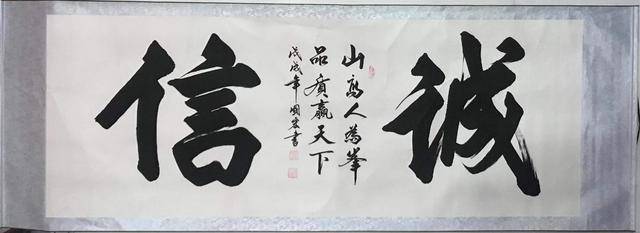 诚
山高人为峯
品质赢天下
戊戌年国宏书
信